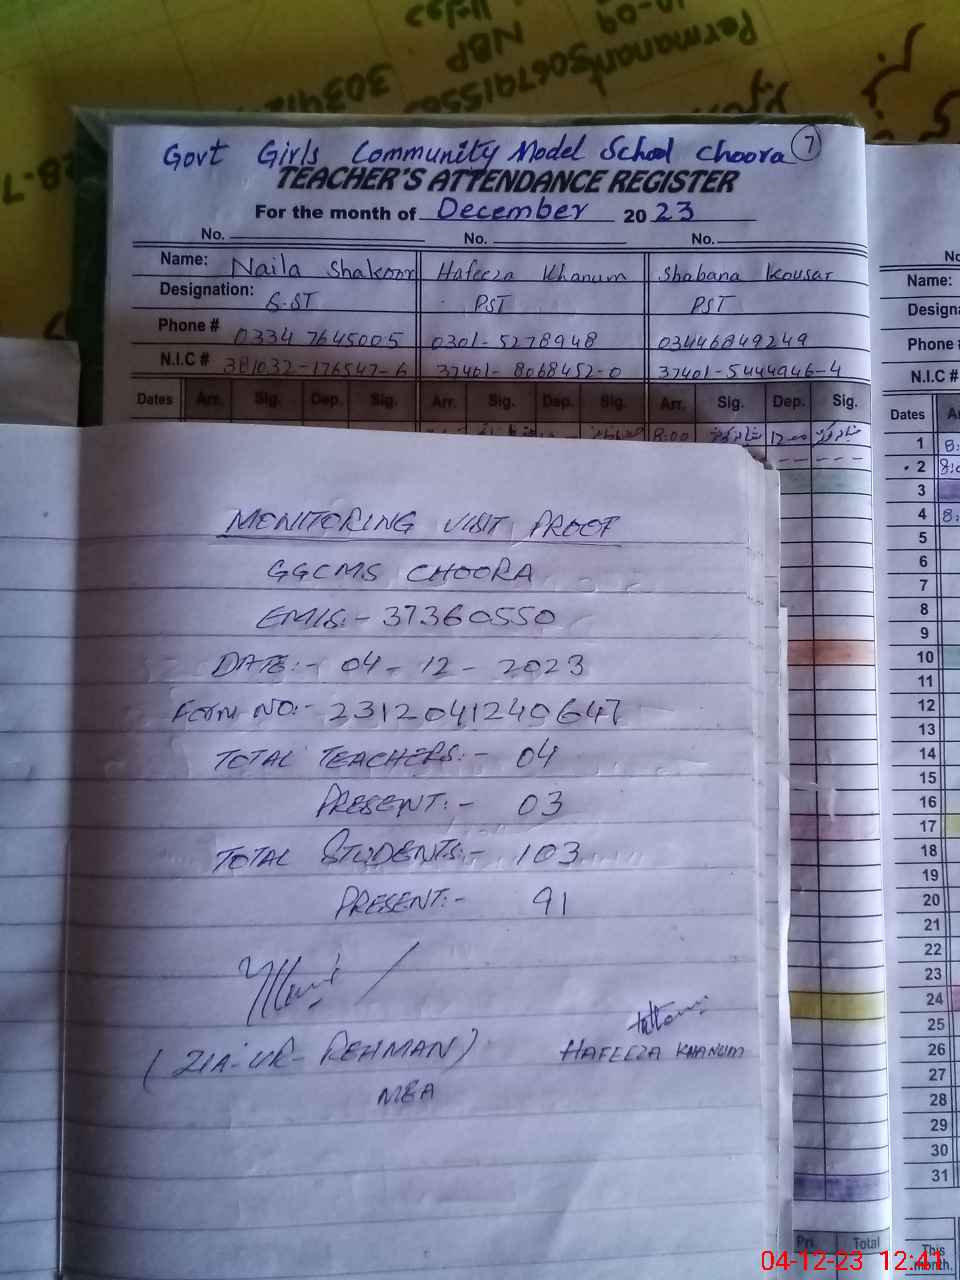 Permanant
NBP
Govt Girls Community Model School Choora 7
TEACHER'S ATTENDANCE REGISTER
For the month of December 2023
No. No. No.
Name: Naila Shakoor Hafeeza Khanum Shabana Kousar
Designation: PST PST
Phone # 0334 7645005 0301-5278948 03446849249
N.I.C # 381032-176547-6 37401-8068452-0 37401-5444946-4
Dates Arr. Sig. Dep. Sig. Arr. Sig. Dep. Sig. Arr. Sig. Dep. Sig.
8:00
MONITORING VISIT PROOF
GGCMS CHOORA
EMIS:- 37360550
DATE:- 04-12-2023
FORM NO:- 2312041240647
TOTAL TEACHERS:- 04
PRESENT:- 03
TOTAL STUDENTS:- 103
PRESENT:- 91
(ZIA-UR-REHMAN)
MEA
HAFEEZA KHANUM
Pri. Total
Name:
Phone #
N.I.C #
Dates
1
2
3
4
5
6
7
8
9
10
11
12
13
14
15
16
17
18
19
20
21
22
23
24
25
26
27
28
29
30
31
This
month.
04-12-23 12:41